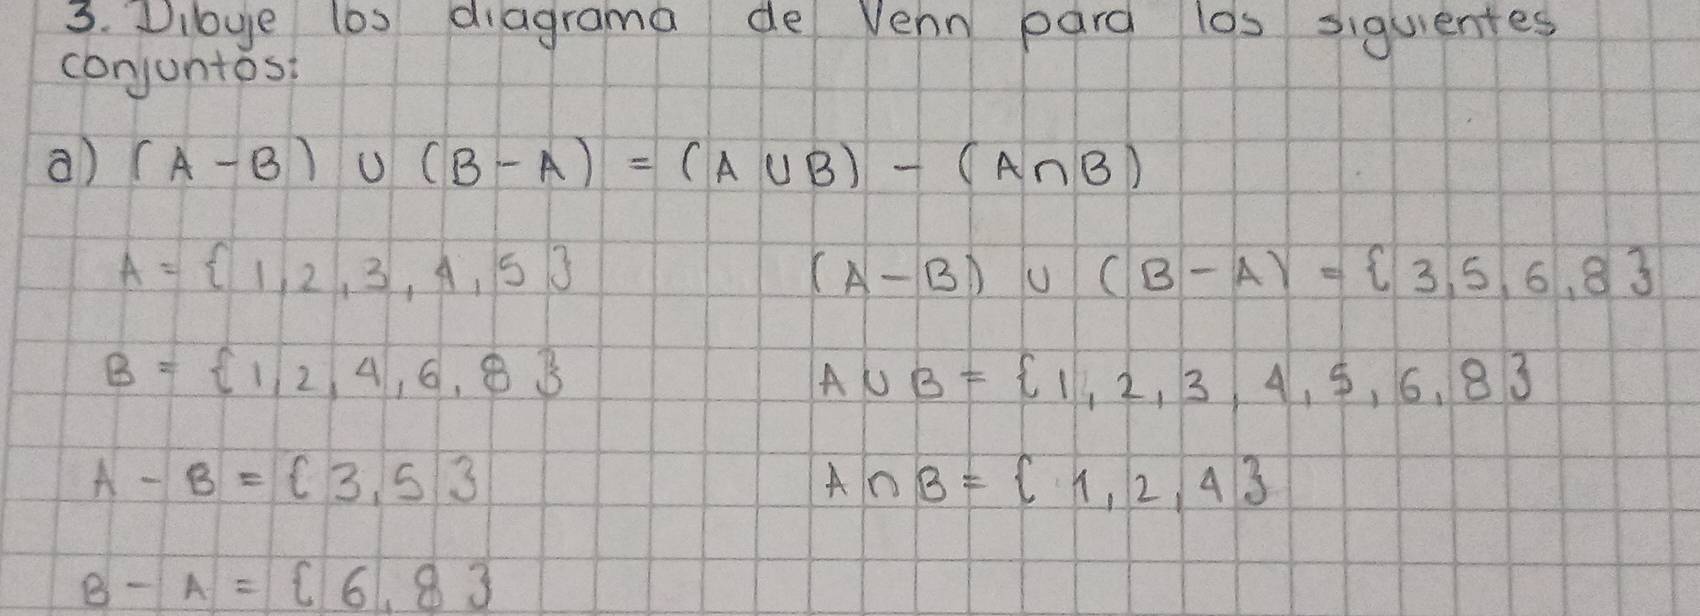 3. Dibuje los diagrama de Venn para los siguientes
conjuntos:
a) (A - B) ∪ (B - A) = (A ∪ B) - (A ∩ B)
A = {1, 2, 3, 4, 5} (A - B) ∪ (B - A) = {3, 5, 6, 8}
B = {1, 2, 4, 6, 8} A ∪ B = {1, 2, 3, 4, 5, 6, 8}
A - B = {3, 5} A ∩ B = {1, 2, 4}
B - A = {6, 8}